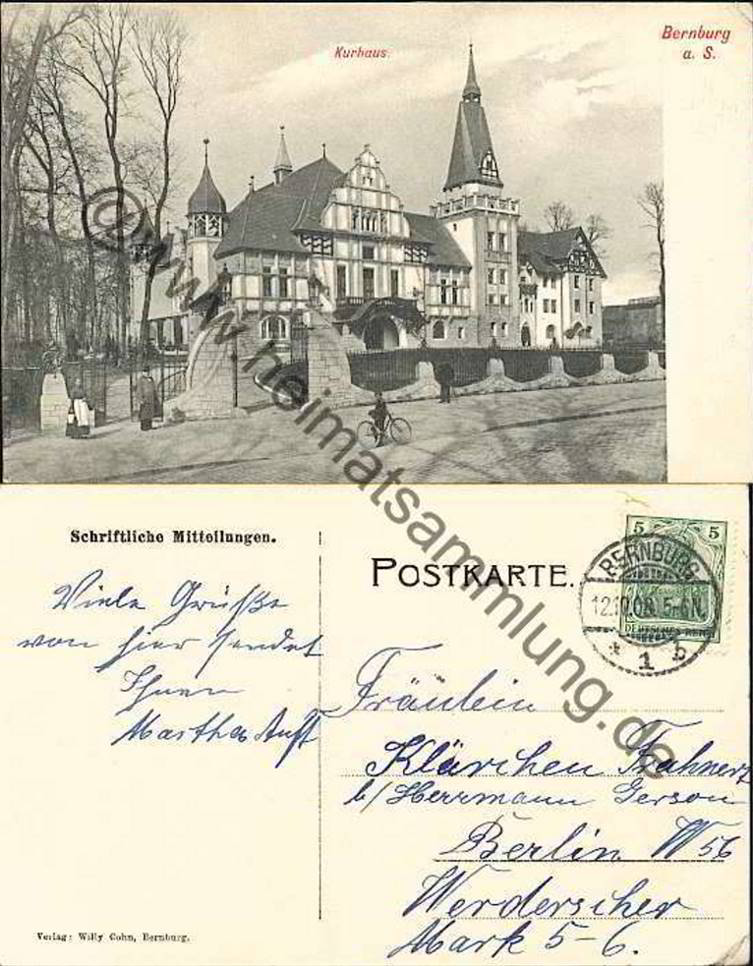 Kurhaus.
Bernburg
a. S.
© www.heimatsammlung.de
Schriftliche Mitteilungen.
POSTKARTE.
5 5
BERNBURG
12.10.08. 5-6N.
* 1 b
DEUTSCHES REICH
Viele Grüße
von hier sendet
Ihnen
Martha
Fräulein
Klärchen Frahnert
b/ Herrmann Gerson
Berlin W 56
Werderscher
Mark 5-6.
Verlag: Willy Cohn, Bernburg.